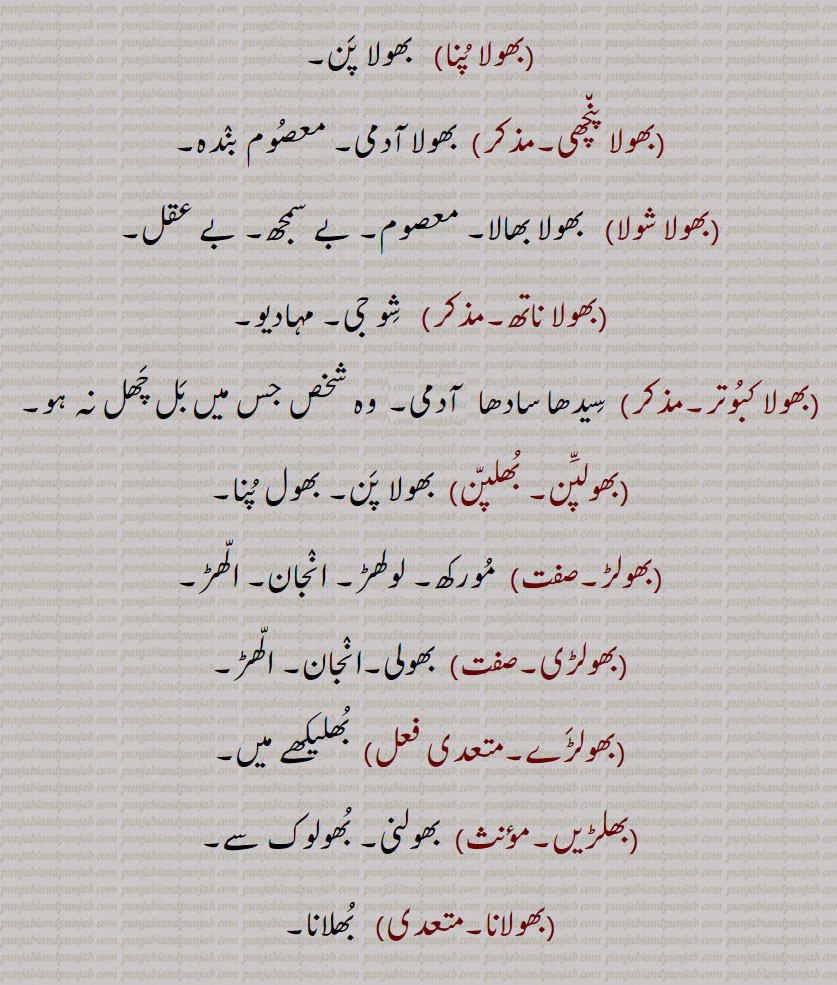 (بھولا پُنا) بھولا پَن۔
(بھولا پنّچھی۔مذکر) بھولا آدمی۔ معصُوم بنْدہ۔
(بھولا شولا) بھولا بھالا۔ معصوم۔ بے سمجھ۔ بے عقل۔
(بھولا ناتھ۔مذکر) شِو جی۔ مہادیو۔
(بھولا کبُوتر۔مذکر) سِیدھا سادھا آدمی۔ وہ شخص جس میں بَل چَھل نہ ہو۔
(بھولپّن۔ بُھلپّن) بھولا پَن۔ بھول پُنا۔
(بھولڑ۔صفت) مُورکھ۔ لولھڑ۔ انْجان۔ الّھڑ۔
(بھولڑی۔صفت) بھولی۔انْجان۔ الّھڑ۔
(بھولڑَے۔متعدی فعل) بُھلیکھے میں۔
(بھلڑیں۔مؤنث) بھولنی۔ بُھولوک سے۔
(بھولانا۔متعدی) بُھلانا۔